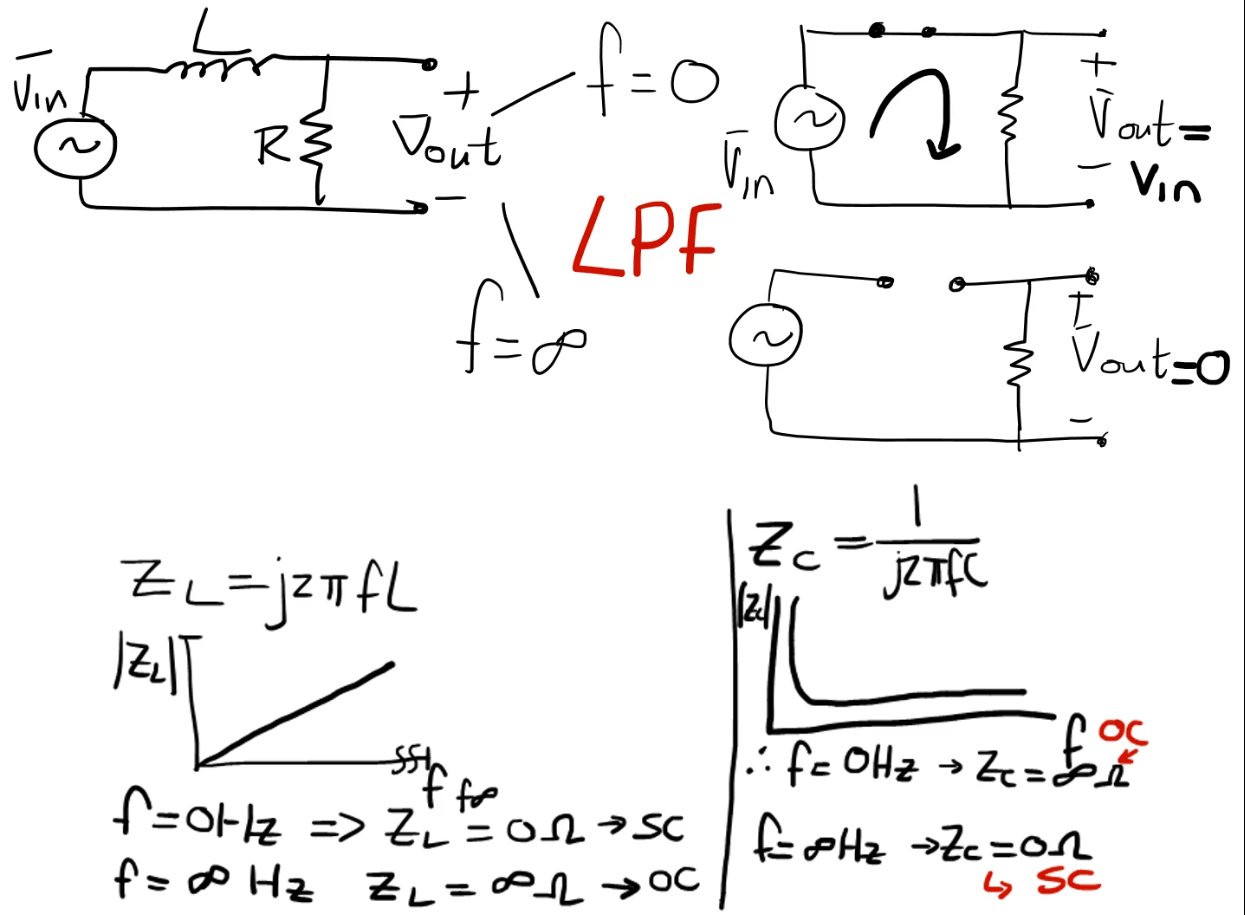 L
V̅in
R
+
V̅out
-
f=0
V̅in
+
V̅out=
- Vin
LPF
f=∞
+
V̅out=0
-
ZL=j2πfL
|ZL|
f f∞
f=0Hz => ZL=0Ω→SC
f=∞ Hz ZL=∞Ω→OC
Zc=1/j2πfC
|Zc|
f OC
∴ f=0Hz → Zc=∞Ω
f=∞Hz →Zc=0Ω
↳ SC